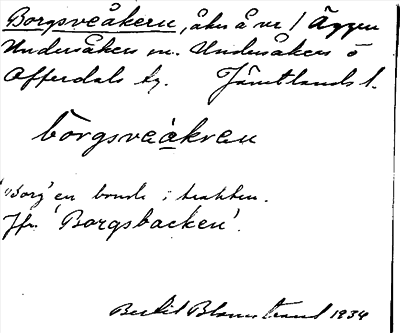 Borgsveåkern, åker å nr 1 Äggen
Undersåkers sn. Undersåkers o
Offerdals tg. Jämtlands l.
borgsveåkren
'Borg' en bonde i trakten.
Jfr 'Borgsbacken'.
Bertil Blomstrand 1934